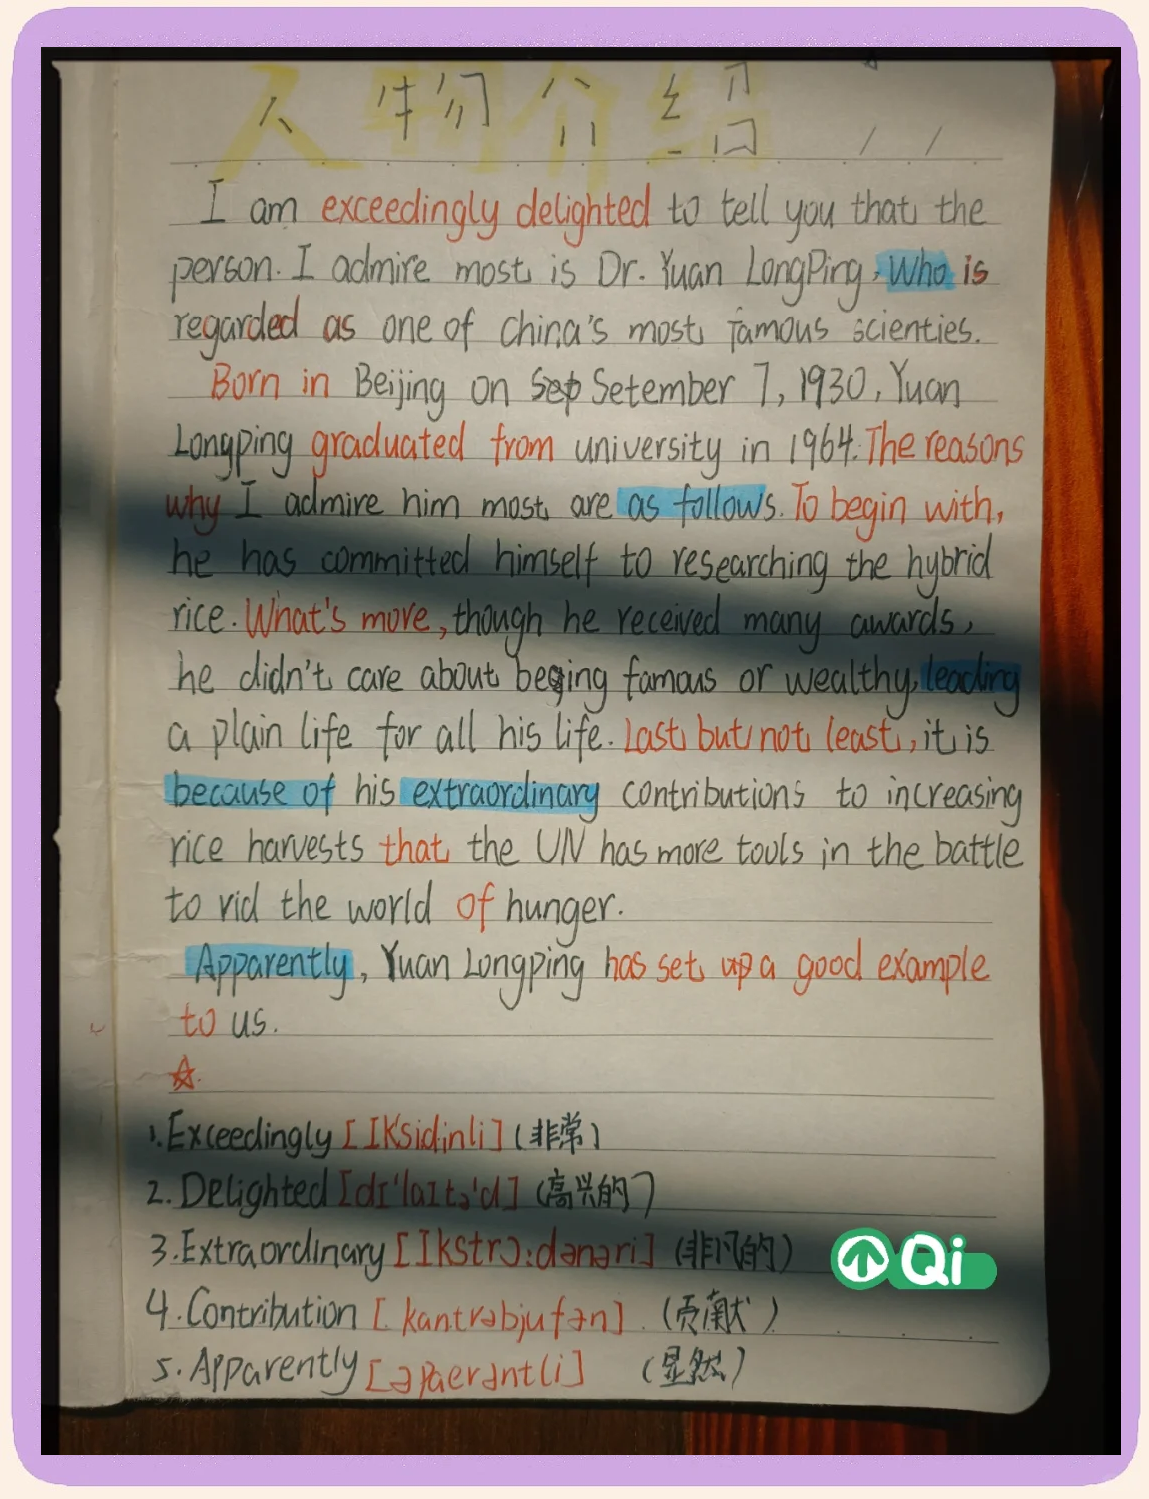 人物介绍
I am exceedingly delighted to tell you that the
person. I admire most is Dr. Yuan LongPing, Who is
regarded as one of china's most famous scienties.
Born in Beijing on Sep Setember 7, 1930, Yuan
Longping graduated from university in 1964. The reasons
why I admire him most are as follows. To begin with,
he has committed himself to researching the hybrid
rice. What's move, though he received many awards,
he didn't care about beging famous or wealthy, leading
a plain life for all his life. Last but not least, it is
because of his extraordinary contributions to increasing
rice harvests that the UN has more tools in the battle
to rid the world of hunger.
Apparently, Yuan Longping has set up a good example
to us.
1. Exceedingly [IK'sidinli] (非常)
2. Delighted [dI'laItə'd] (高兴的)
3. Extraordinary [Ikstrɔ:dənəri] (非凡的)
4. Contribution [kantrəbjuʃən] (贡献)
5. Apparently [əpaerəntli] (显然)
Qi